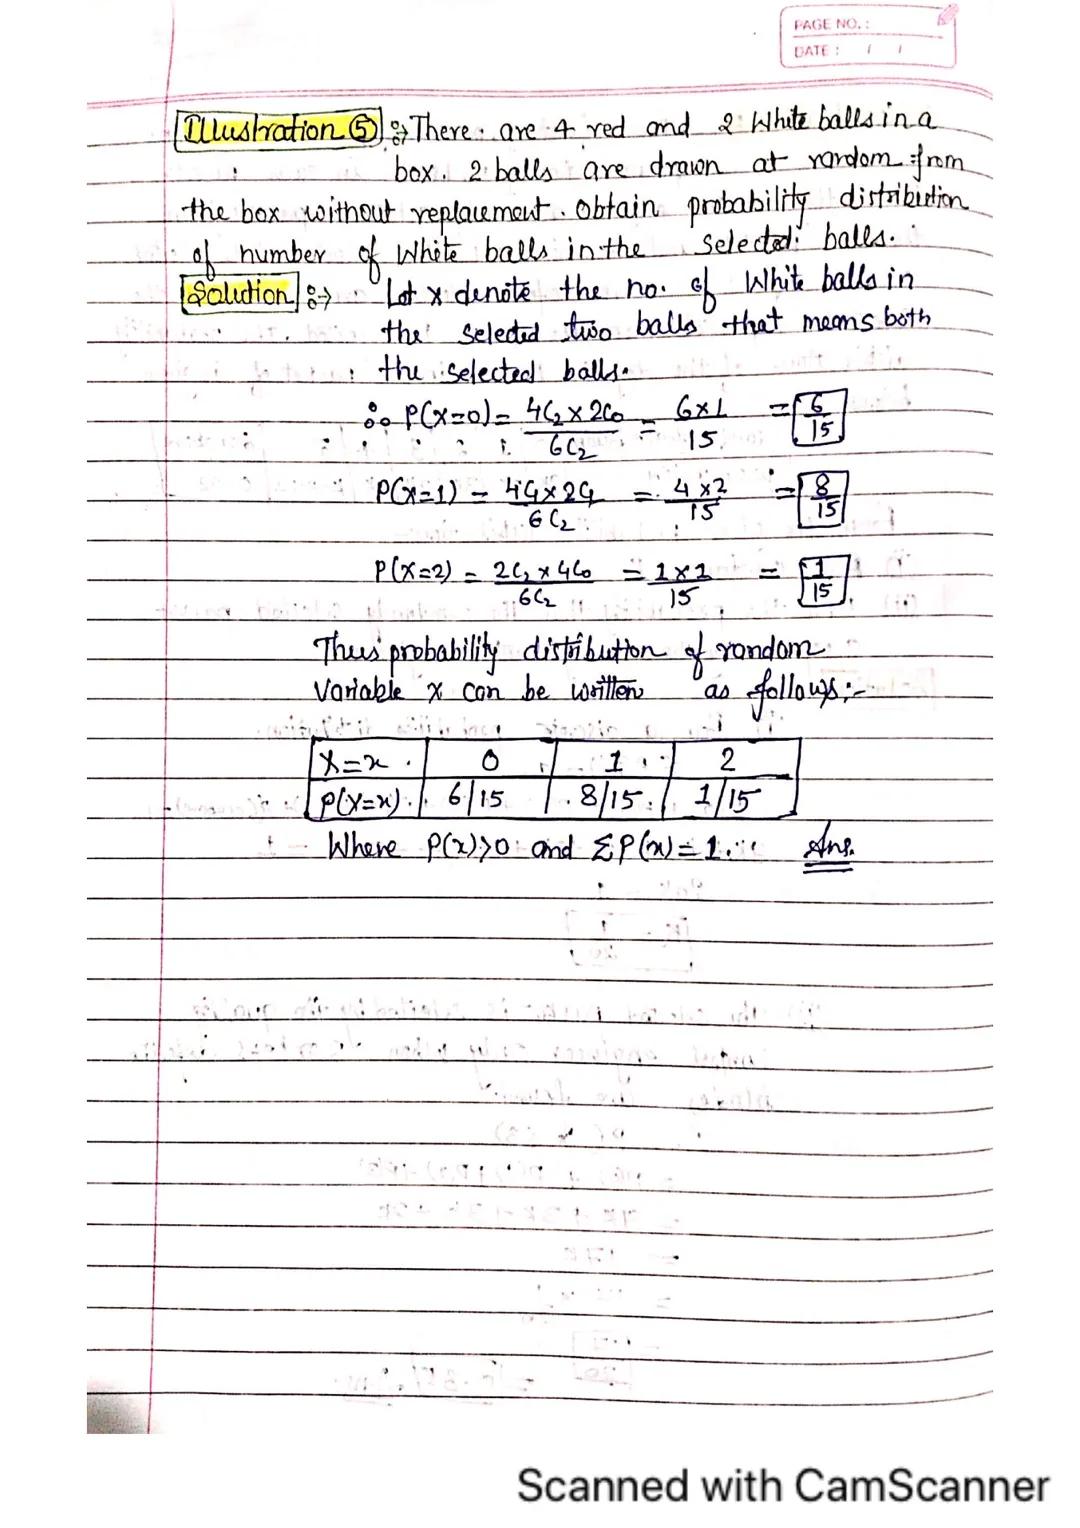 PAGE NO. :
DATE : / /
Illustration ⑤ :→ There are 4 red and 2 White balls in a
box. 2 balls are drawn at random from
the box without replacement. Obtain probability distribution
of number of White balls in the selected balls.
Solution :→ Let x denote the no. of White balls in
the selected two balls that means both
the selected balls.
∴ P(x=0) = 4C2 × 2C0 / 6C2 = 6×1 / 15 = 6/15
P(x=1) = 4C1 × 2C1 / 6C2 = 4×2 / 15 = 8/15
P(x=2) = 2C2 × 4C0 / 6C2 = 1×1 / 15 = 1/15
Thus probability distribution of random
Variable x can be written as follows:-
X=x 0 1 2
P(X=x) 6/15 8/15 1/15
Where P(x)>0 and ΣP(x)=1. Ans.
Scanned with CamScanner